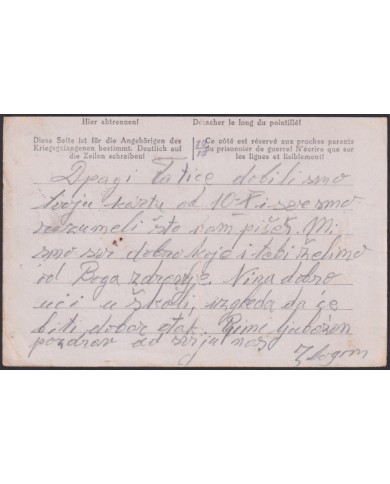 Hier abtrennen! Détacher le long du pointillé!
Diese Seite ist für die Angehörigen des
Kriegsgefangenen bestimmt. Deutlich auf
die Zeilen schreiben!
Ce côté est réservé aux proches parents
du prisonnier de guerre! N'écrire que sur
les lignes et lisiblement!
Dragi Tatice dobili smo
tvoju kartu od 10-X- i sve smo
razumeli što nam pišeš. Mi
smo svi dobro koje i tebi želimo
od Boga zdravje. Nina dobro
uči u školi, izgleda da će
biti dobar đak. Primi ljubazan
pozdrav od sviju nas
Z Bogom